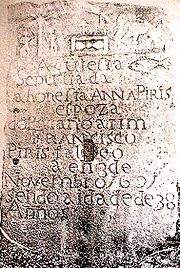 Aqui esta
Sepultada
a honesta ANNA PIRIS
espoza
do
FRANCISCO
PIRIS
a en 3 de
Novembro 1697
Sendo a idade de 38
Annos